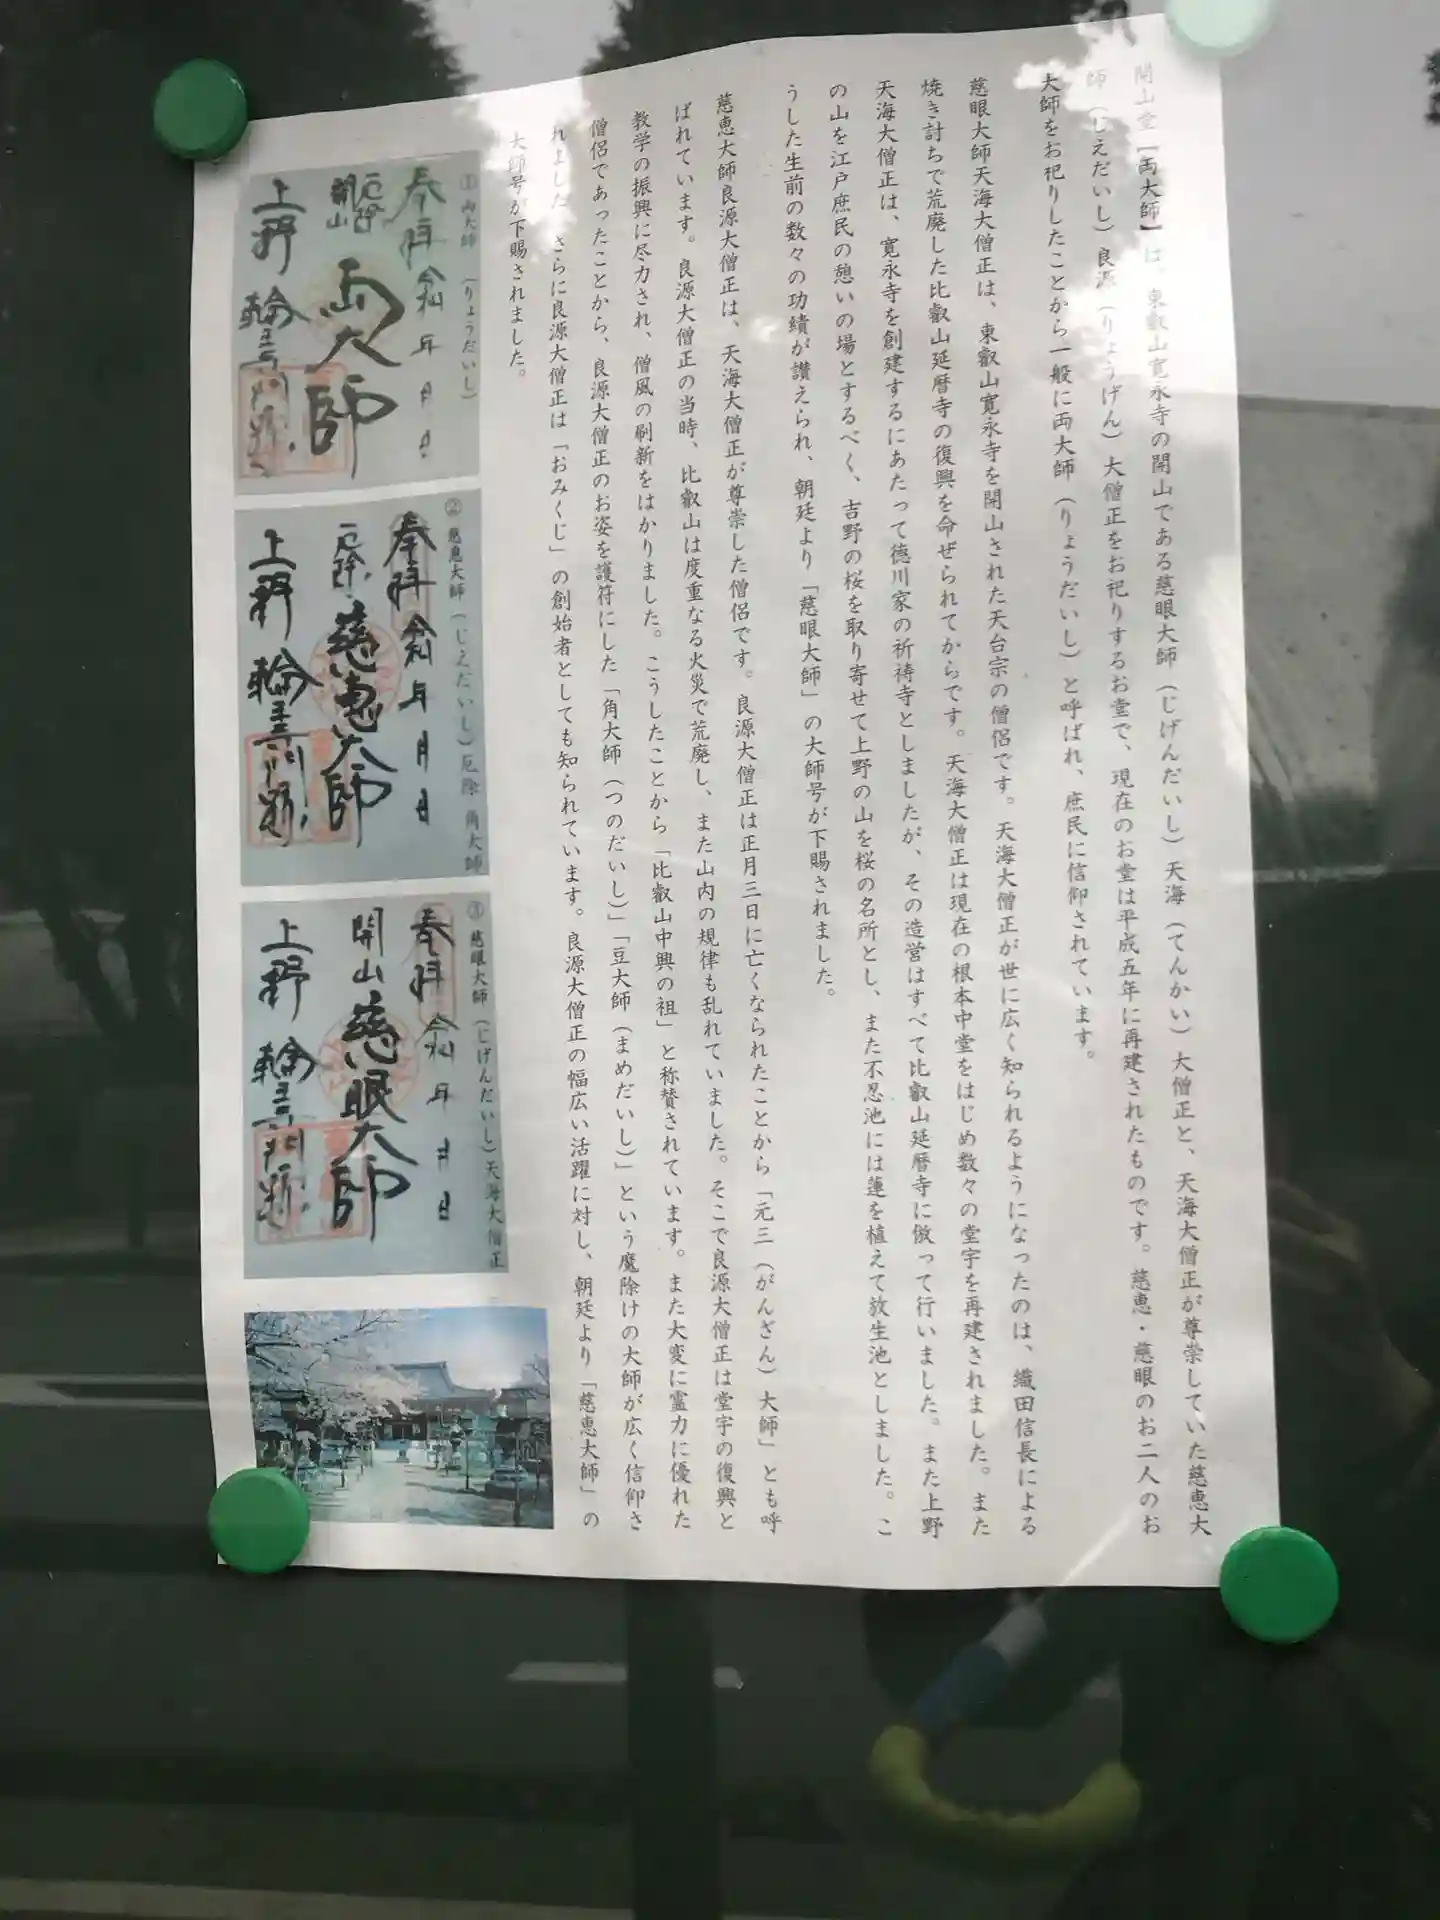 開山堂【両大師】は、東叡山寛永寺の開山である慈眼大師（じげんだいし）天海（てんかい）大僧正と、天海大僧正が尊崇していた慈恵大
師（じえだいし）良源（りょうげん）大僧正をお祀りするお堂で、現在のお堂は平成五年に再建されたものです。慈恵・慈眼のお二人のお
大師をお祀りしたことから一般に両大師（りょうだいし）と呼ばれ、庶民に信仰されています。
慈眼大師天海大僧正は、東叡山寛永寺を開山された天台宗の僧侶です。天海大僧正が世に広く知られるようになったのは、織田信長による
焼き討ちで荒廃した比叡山延暦寺の復興を命ぜられてからです。天海大僧正は現在の根本中堂をはじめ数々の堂宇を再建されました。また
天海大僧正は、寛永寺を創建するにあたって徳川家の祈祷寺としましたが、その造営はすべて比叡山延暦寺に倣って行いました。また上野
の山を江戸庶民の憩いの場とするべく、吉野の桜を取り寄せて上野の山を桜の名所とし、また不忍池には蓮を植えて放生池としました。こ
うした生前の数々の功績が讃えられ、朝廷より「慈眼大師」の大師号が下賜されました。
慈恵大師良源大僧正は、天海大僧正が尊崇した僧侶です。良源大僧正は正月三日に亡くなられたことから「元三（がんざん）大師」とも呼
ばれています。良源大僧正の当時、比叡山は度重なる火災で荒廃し、また山内の規律も乱れていました。そこで良源大僧正は堂宇の復興と
教学の振興に尽力され、僧風の刷新をはかりました。こうしたことから「比叡山中興の祖」と称賛されています。また大変に霊力に優れた
僧侶であったことから、良源大僧正のお姿を護符にした「角大師（つのだいし）」「豆大師（まめだいし）」という魔除けの大師が広く信仰さ
れました。さらに良源大僧正は「おみくじ」の創始者としても知られています。良源大僧正の幅広い活躍に対し、朝廷より「慈恵大師」の
大師号が下賜されました。
①両大師（りょうだいし）
奉拝 令和 年 月 日
厄除 開山 両大師
上野 輪王寺門跡
②慈恵大師（じえだいし）厄除 角大師
奉拝 令和 年 月 日
厄除 慈恵大師
上野 輪王寺門跡
③慈眼大師（じげんだいし）天海大僧正
奉拝 令和 年 月 日
開山 慈眼大師
上野 輪王寺門跡